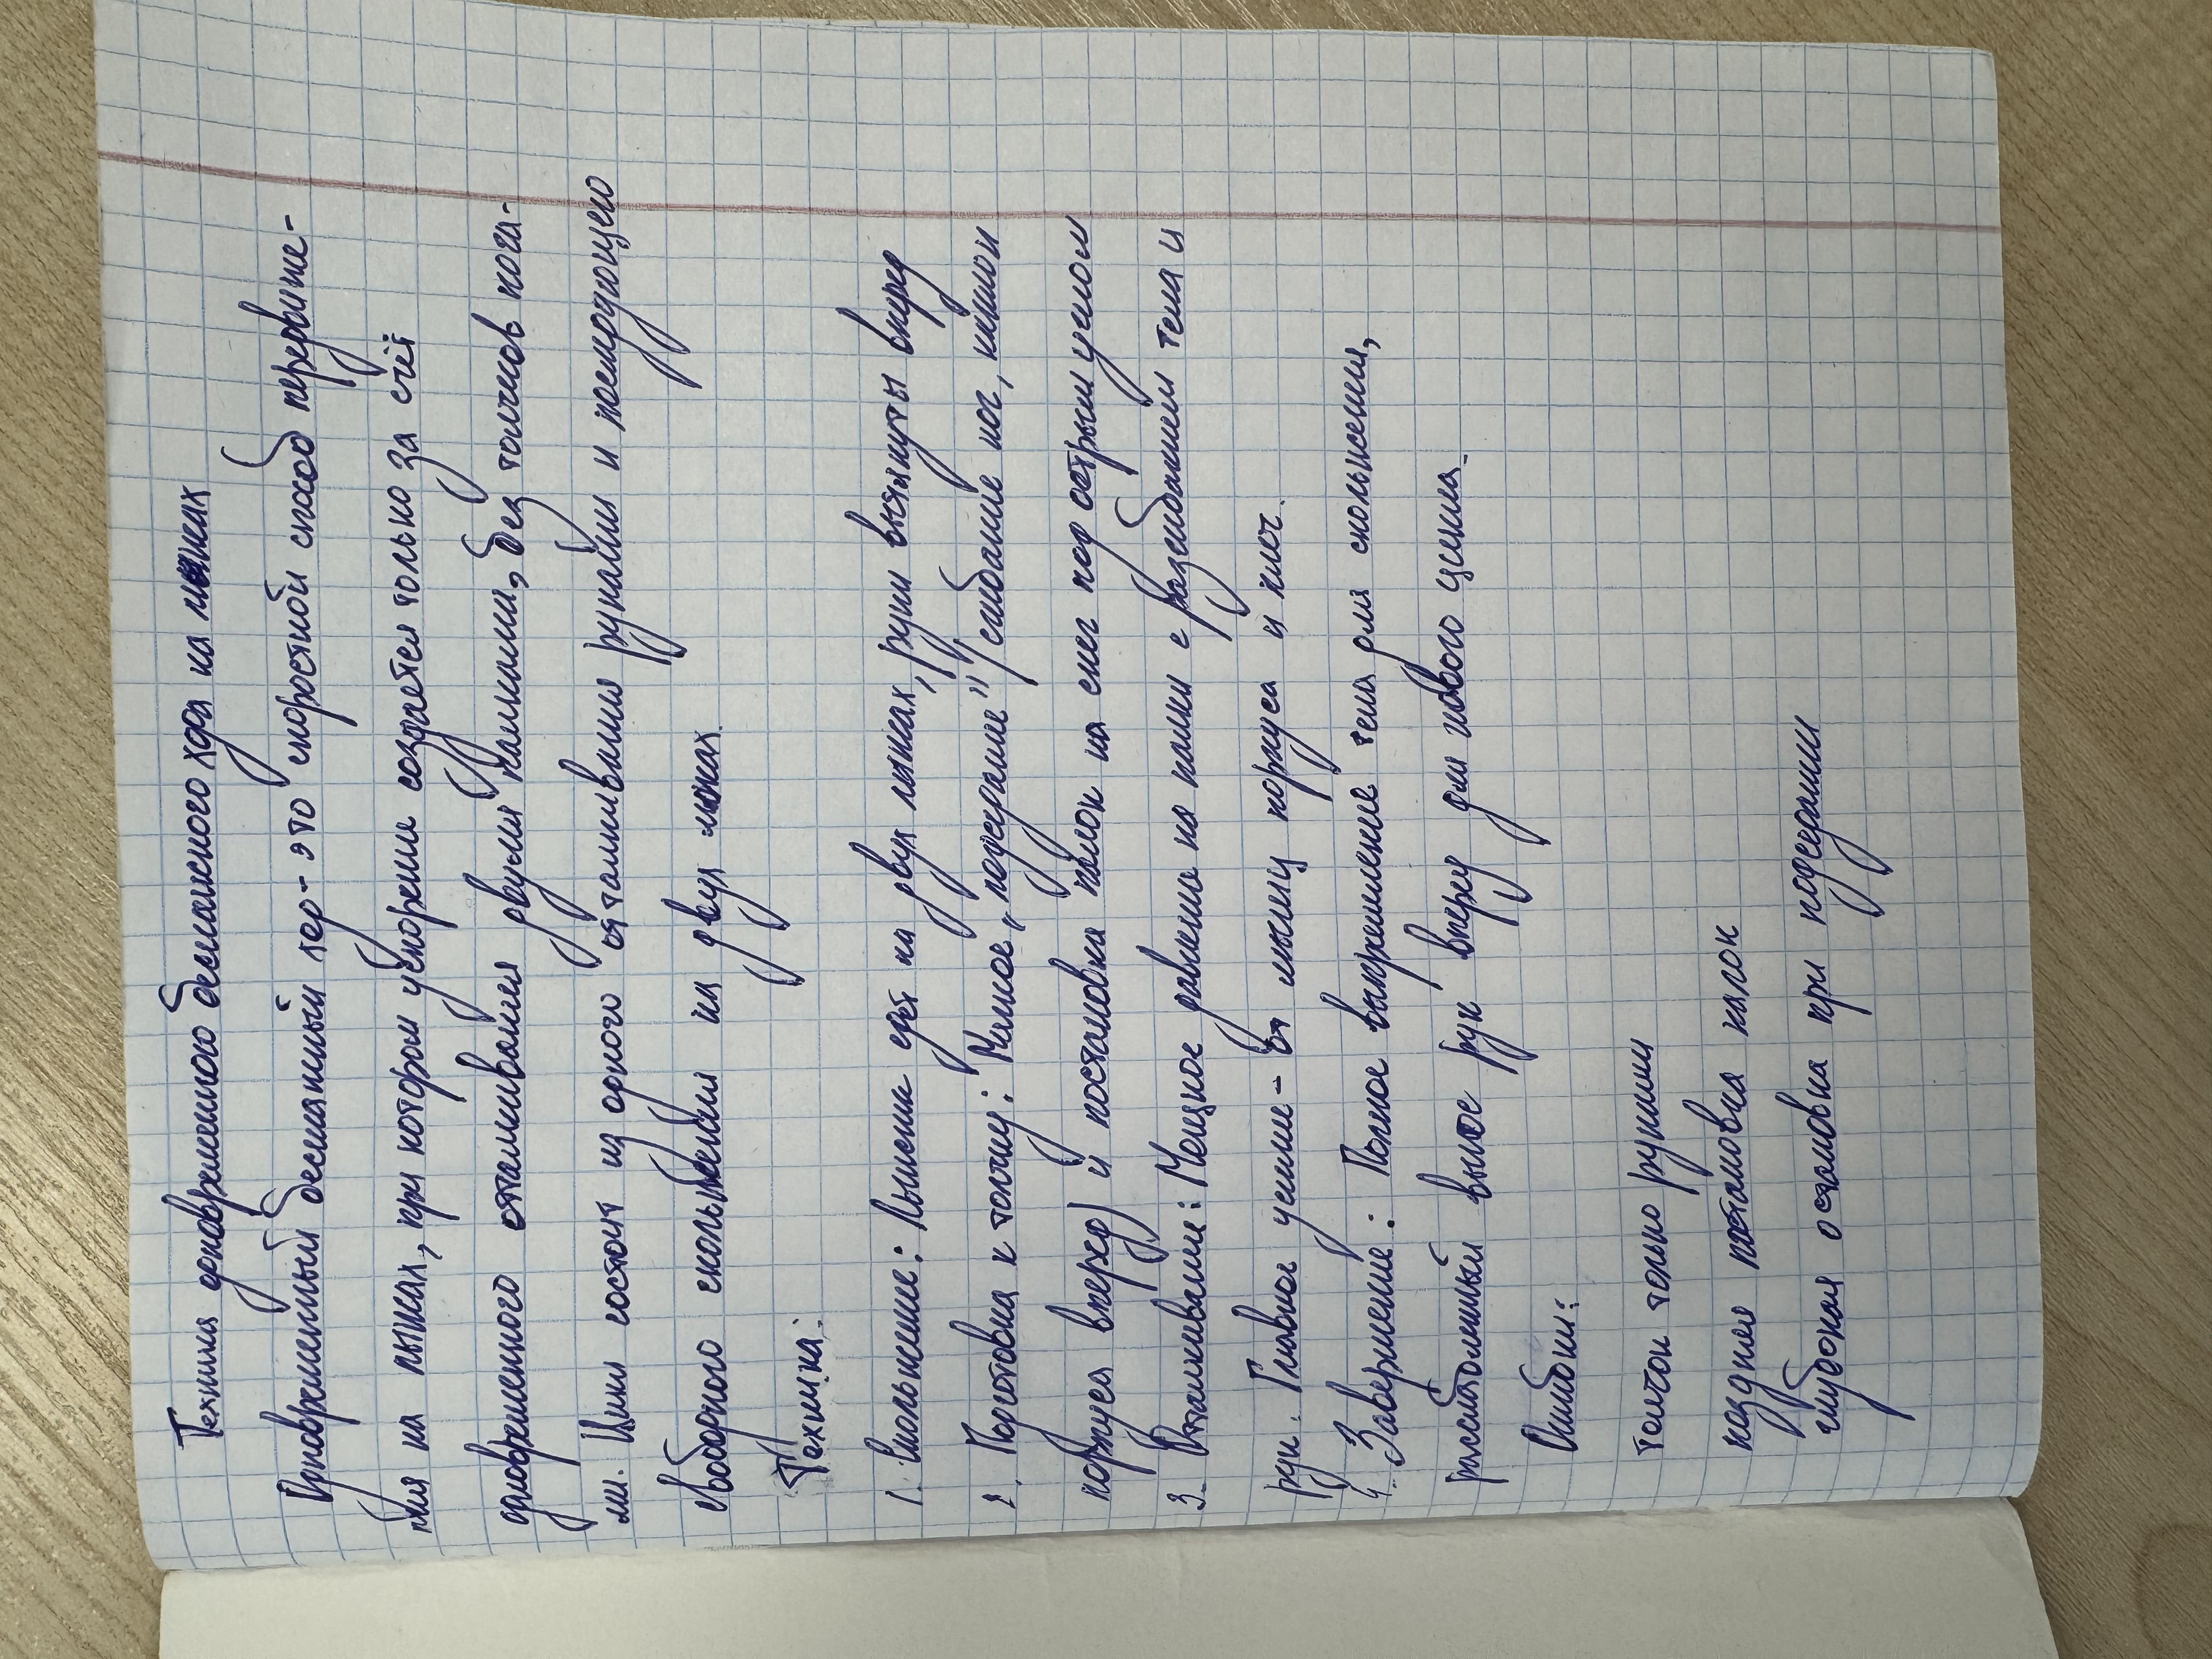 Техника одновременного бесшажного хода на лыжах
Одновременный бесшажный ход - это скоростной способ передвиже-
ния на лыжах, при котором ускорение создается только за счёт
одновременного отталкивания двумя палками, без толчков нога-
ми. Цикл состоит из одного отталкивания руками и последующего
свободного скольжения на двух лыжах.
Техника:
1. Скольжение: Лыжник едет на двух лыжах, руки вытянуты вперед
2. Подготовка к толчку: Мягкое „подседание" (сгибание ног, наклон
корпуса вперед) и постановка палок на снег под острым углом
3. Отталкивание: Мощное давление на палки с разгибанием тела и
рук. Главное усилие - от мышц корпуса и плеч.
4. Завершение: Полное выпрямление тела для скольжения,
расслабленный вынос рук вперед для нового цикла.
Ошибки:
Толчок только руками
поздняя постановка палок
глубокая остановка при подседании